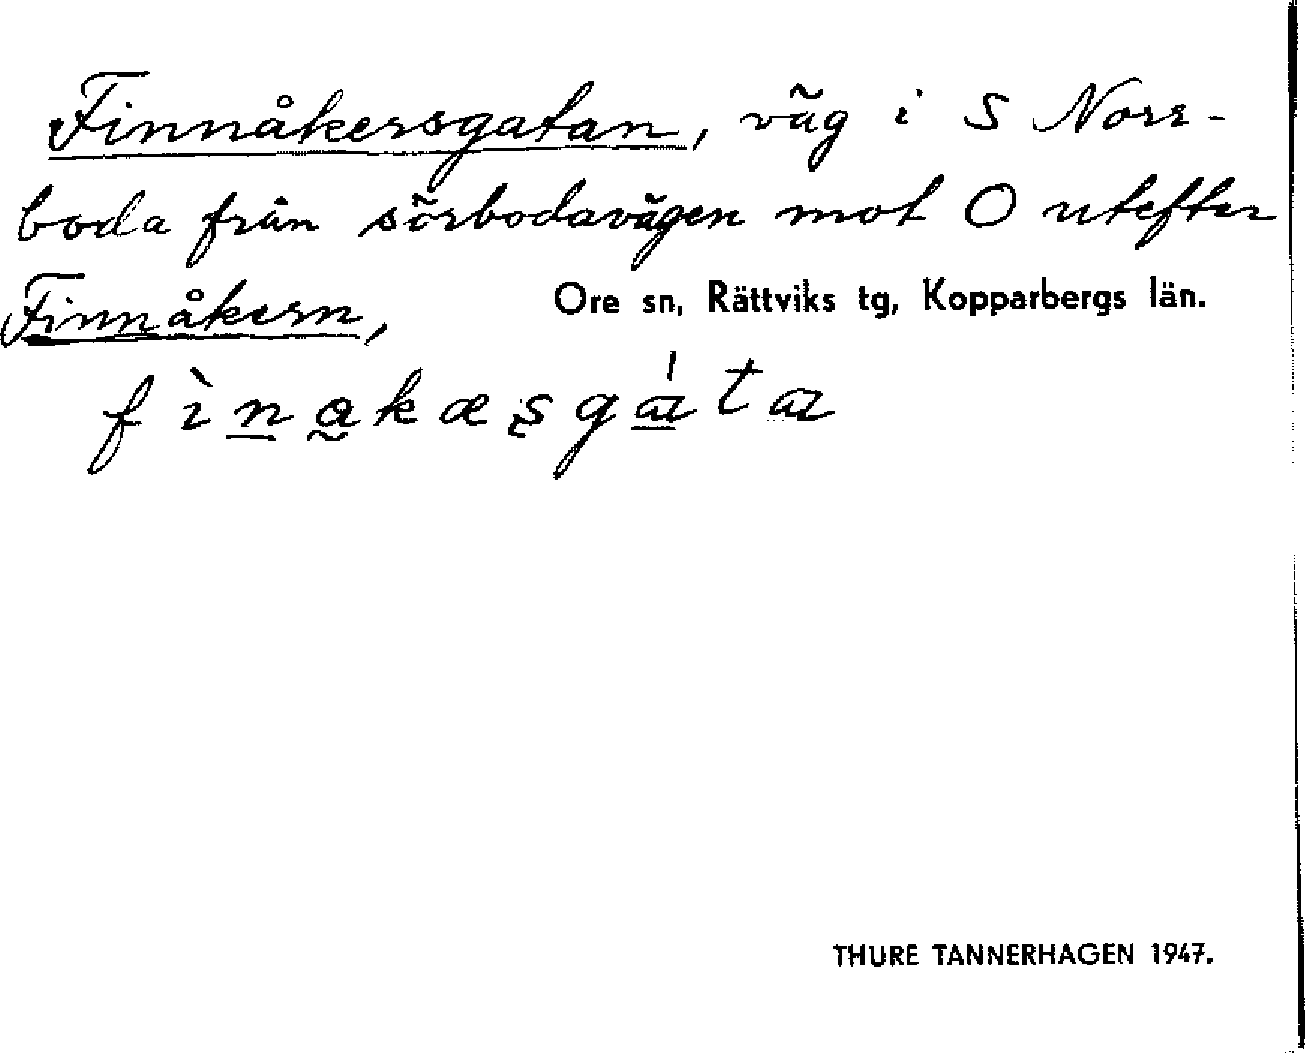 Finnåkersgatan, väg i S Norr-
boda från sörbodavägen mot O utefter
Finnåkern,
Ore sn, Rättviks tg, Kopparbergs län.
f ì n a k æ s g á t a
THURE TANNERHAGEN 1947.